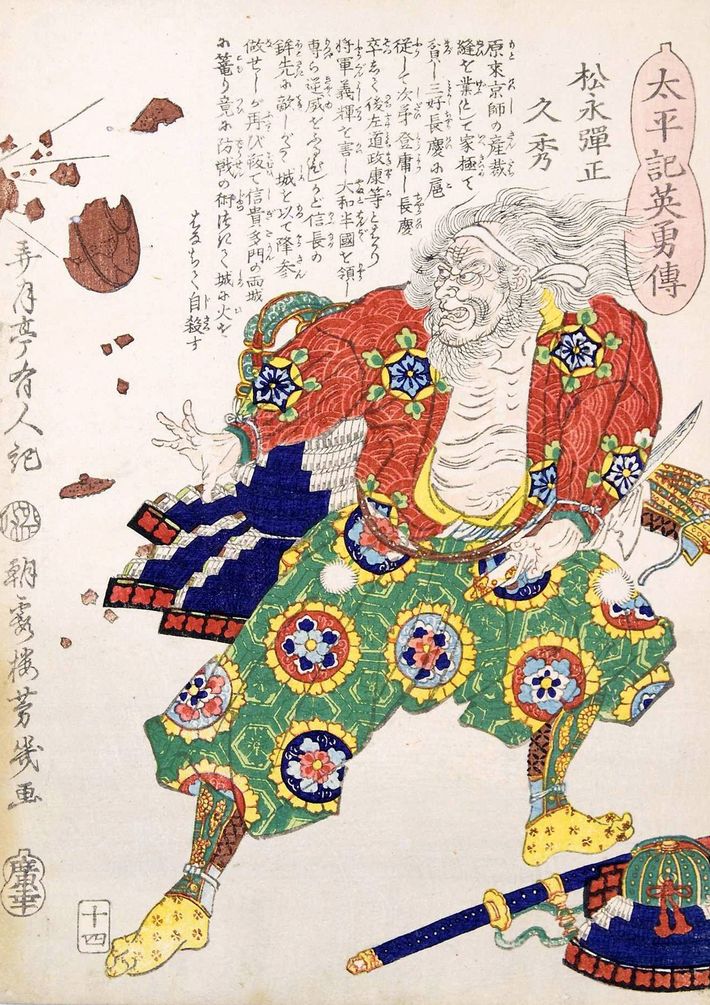 太平記英勇傳
松永彈正
久秀
原来京師の産裁
縫を業として家極て
貧し三好長慶に扈
従して次第登庸し長慶
卒して後
将軍義輝を害し大和半國を領し
専ら逆威をふるひしかど信長の
鉾先に敵しがたく城を以て降参
做せしが再び叛て信貴多門の両城
に篭り竟に防戦の術つきて城に火を
はなちて自殺す
弄月亭有人記
朝霞楼芳幾画
廣幸
十四